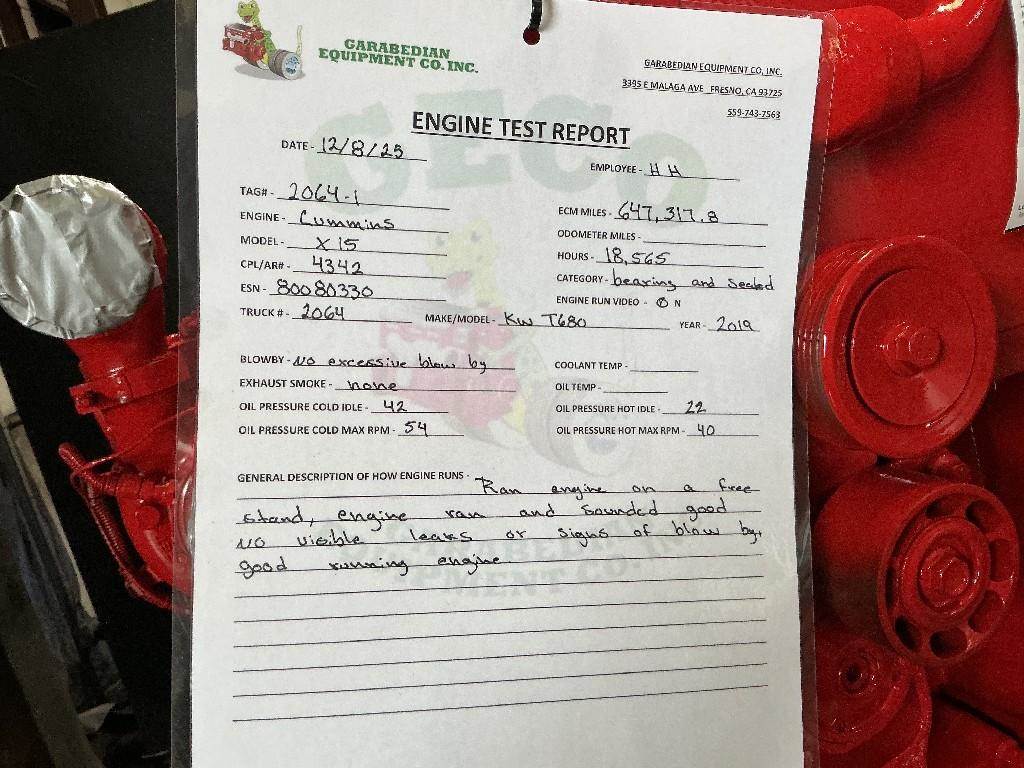 GARABEDIAN
EQUIPMENT CO. INC.
GARABEDIAN EQUIPMENT CO, INC.
3395 E MALAGA AVE FRESNO, CA 93725
559-743-7563
GECO
ENGINE TEST REPORT
DATE - 12/8/25
EMPLOYEE - HH
TAG# - 2064-1
ENGINE - Cummins
MODEL - X15
CPL/AR# - 4342
ESN - 80080330
TRUCK # - 2064 MAKE/MODEL - KW T680 YEAR - 2019
ECM MILES - 647,317.8
ODOMETER MILES -
HOURS - 18,565
CATEGORY - bearing and sealed
ENGINE RUN VIDEO - Y N
BLOWBY - NO excessive blow by
EXHAUST SMOKE - none
OIL PRESSURE COLD IDLE - 42
OIL PRESSURE COLD MAX RPM - 54
COOLANT TEMP -
OIL TEMP -
OIL PRESSURE HOT IDLE - 22
OIL PRESSURE HOT MAX RPM - 40
GENERAL DESCRIPTION OF HOW ENGINE RUNS - Ran engine on a free
stand, engine ran and sounded good
NO visible leaks or signs of blow by,
good running engine